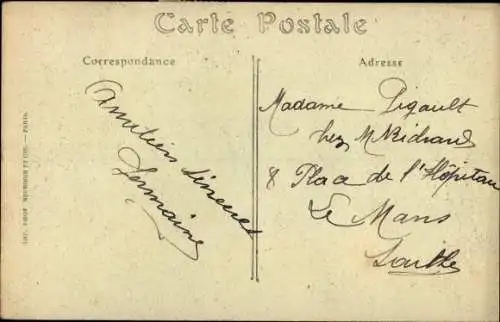 Carte Postale
Correspondance
Amitiés sincères
Germaine
Adresse
Madame Pigault
chez M Richard
8 Place de l'Hôpital
Le Mans
Sarthe